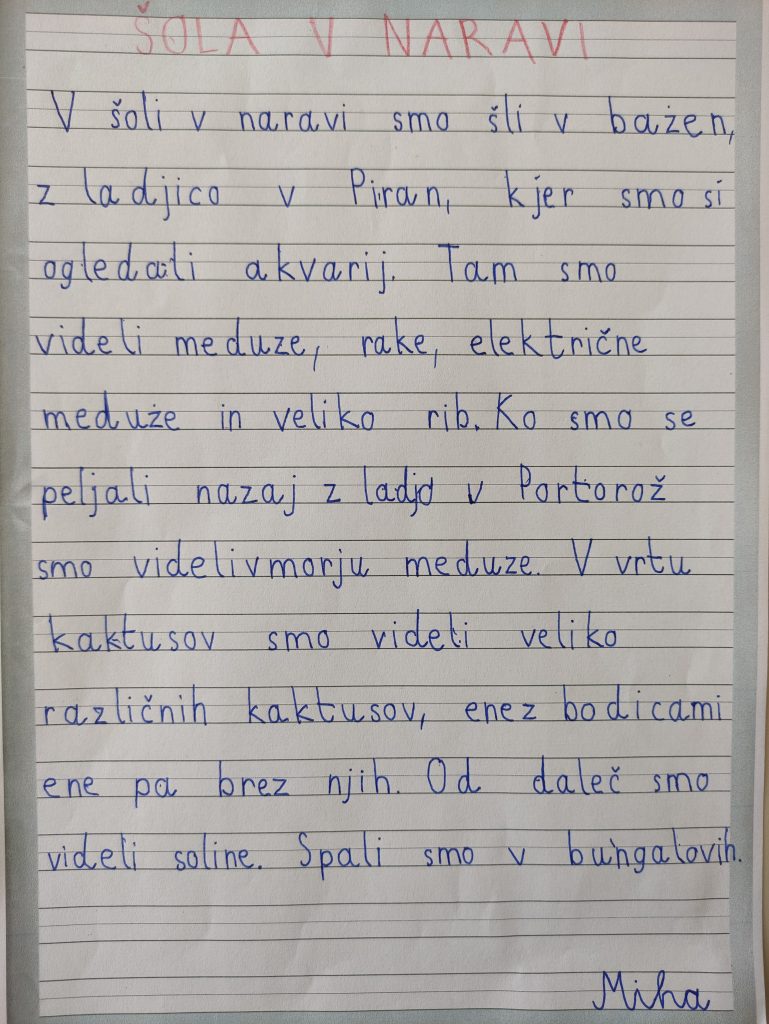 ŠOLA V NARAVI
V šoli v naravi smo šli v bazen,
z ladjico v Piran, kjer smo si
ogledali akvarij. Tam smo
videli meduze, rake, električne
meduze in veliko rib. Ko smo se
peljali nazaj z ladjo v Portorož
smo videli v morju meduze. V vrtu
kaktusov smo videli veliko
različnih kaktusov, ene z bodicami
ene pa brez njih. Od daleč smo
videli soline. Spali smo v bungalovih.
Miha